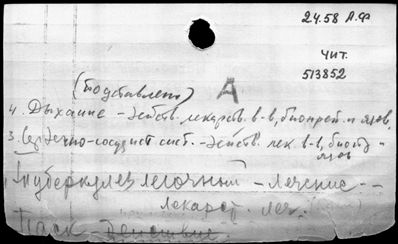 24.58 А.Ф
ЧИТ.
513852
(Подставлено)
А
4. Дыхание - действ. лекарств. в-в, биопреп. и ядов.
3. Сердечно-сосудист. сист. - действ. лек. в-в, биопр. и ядов
Туберкулез легочный - лечение - -
лекарст. леч.
Паск - действие